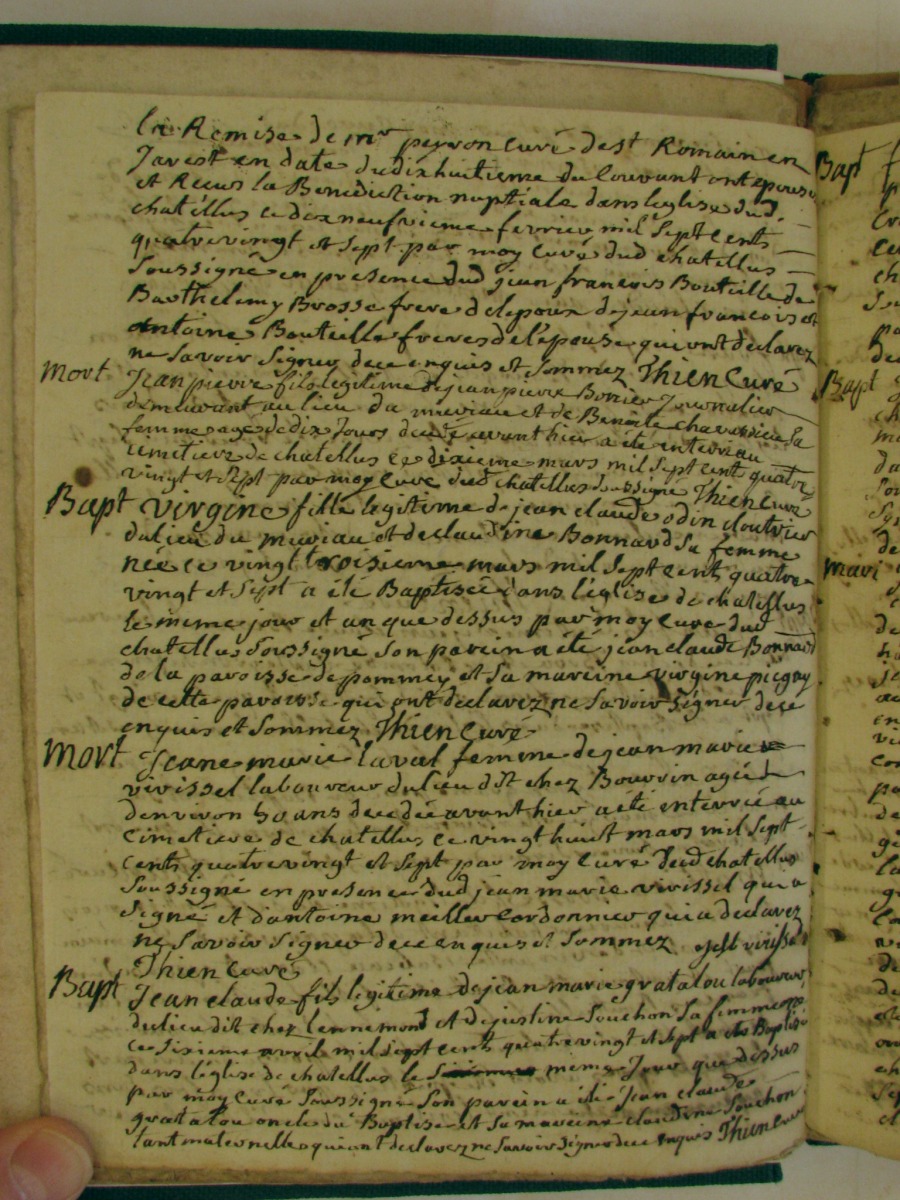 la Remise de mr peyron curé de st Romain en
Jarest en date du dix huitieme du Courant ont epousé
et Recus la Benediction nuptiale dans leglise dud.
chatellus ce dix neufvieme fevrier mil sept cents
quatrevingt et sept par moy curé dud chatellus
soussigné en presence dud jean francois Bouteille de
Barthelemy Brosse frere de lepoux de jean francois et
antoine Bouteille freres de l'epouse qui ont declarez
ne savoir signer de ce enquis et sommez Thien Curé
mort Jean pierre fils legitime de jean pierre Bonier Journalier
demeurant au lieu du muriau et de Benoite sa
femme agé de dix Jours decedé avant hier a été enterré au
cimetiere de chatellus ce dixieme mars mil sept cent quatre
vingt et sept par moy curé dud chatellus soussigné Thien Curé
Bapt virgine fille legitime de jean claude odin cloutrier
du lieu du muriau et de claudine Bonnard sa femme
née ce vingt troisieme mars mil sept cents quatre
vingt et sept a été Baptisée dans l'église de chatellus
le meme jour et an que dessus par moy curé dud
chatellus soussigné son parein a été jean claude Bonnard
de la paroisse de pommey et sa mareine virgine pigny
de cette paroisse qui ont declarez ne savoir signer de ce
enquis et sommez Thien Curé
Mort Jeane marie laval femme de jean marie
virissel laboureur du lieu dit chez Bouvrin agée
denviron 50 ans decedée avant hier a été enterrée au
cimetiere de chatellus ce vingt huit mars mil sept
cents quatrevingt et sept par moy curé dud chatellus
soussigné en presence dud jean marie virissel qui a
signé et d'antoine meiller cordonnier qui a declarez
ne savoir signer de ce enquis et sommez virissel
Thien Curé
Bapt Jean claude fils legitime de jean marie gratalou laboureur
du lieu dit chez lennemond et de justine Souchon sa femme né
ce sixieme avril mil sept cents quatre vingt et sept a été Baptisé
dans l'église de chatellus le meme Jour que dessus
par moy curé soussigné son parein a été Jean claude
gratalou oncle du Baptisé et sa mareine claudine Souchon
tant maternelle qui ont declarez ne savoir signer de ce enquis Thien Curé
Bapt
Bapt
mari